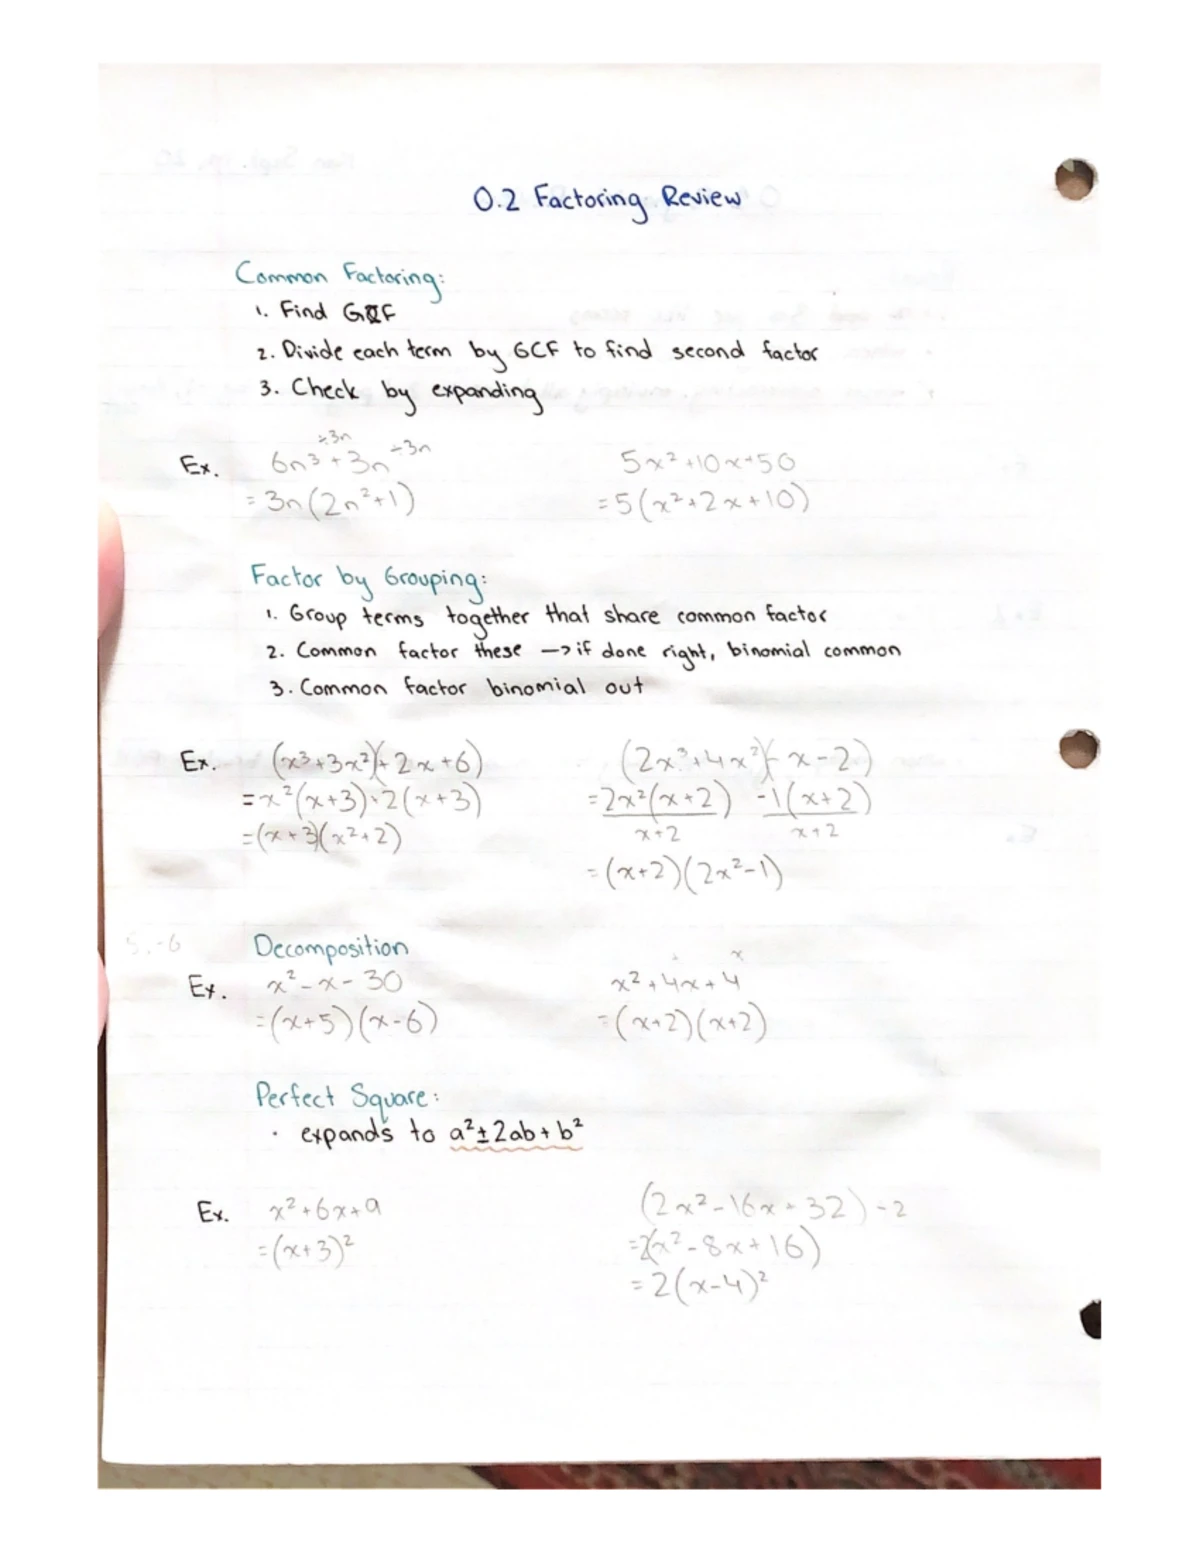 0.2 Factoring Review
Common Factoring:
1. Find GCF
2. Divide each term by GCF to find second factor
3. Check by expanding
÷3n ÷3n
Ex. 6n³ + 3n 5x² + 10x + 50
= 3n(2n² + 1) = 5(x² + 2x + 10)
Factor by Grouping:
1. Group terms together that share common factor
2. Common factor these —> if done right, binomial common
3. Common factor binomial out
Ex. (x³ + 3x²)(+ 2x + 6) (2x³ + 4x²)(- x - 2)
= x²(x + 3) + 2(x + 3) = 2x²(x + 2) -1(x + 2)
= (x + 3)(x² + 2) x + 2 x + 2
= (x + 2)(2x² - 1)
5, -6 Decomposition
Ex. x² - x - 30 x² + 4x + 4
= (x + 5)(x - 6) = (x + 2)(x + 2)
Perfect Square:
· expands to a² ± 2ab + b²
Ex. x² + 6x + 9 (2x² - 16x + 32) ÷ 2
= (x + 3)² = 2(x² - 8x + 16)
= 2(x - 4)²